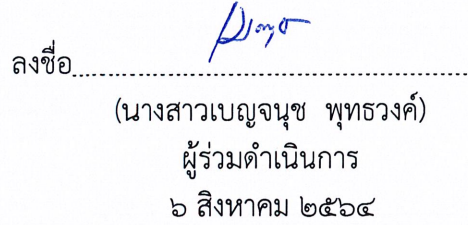 ลงชื่อ
(นางสาวเบญจนุช พุทธวงค์)
ผู้ร่วมดำเนินการ
๖ สิงหาคม ๒๕๖๔